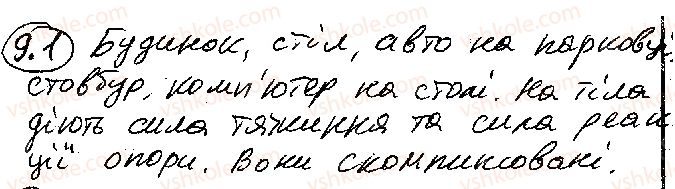 9.1 Будинок, стіл, авто на парковці,
стовбур, комп'ютер на столі. На тіла
діють сила тяжіння та сила реак
ції опори. Вони скомпенсовані.